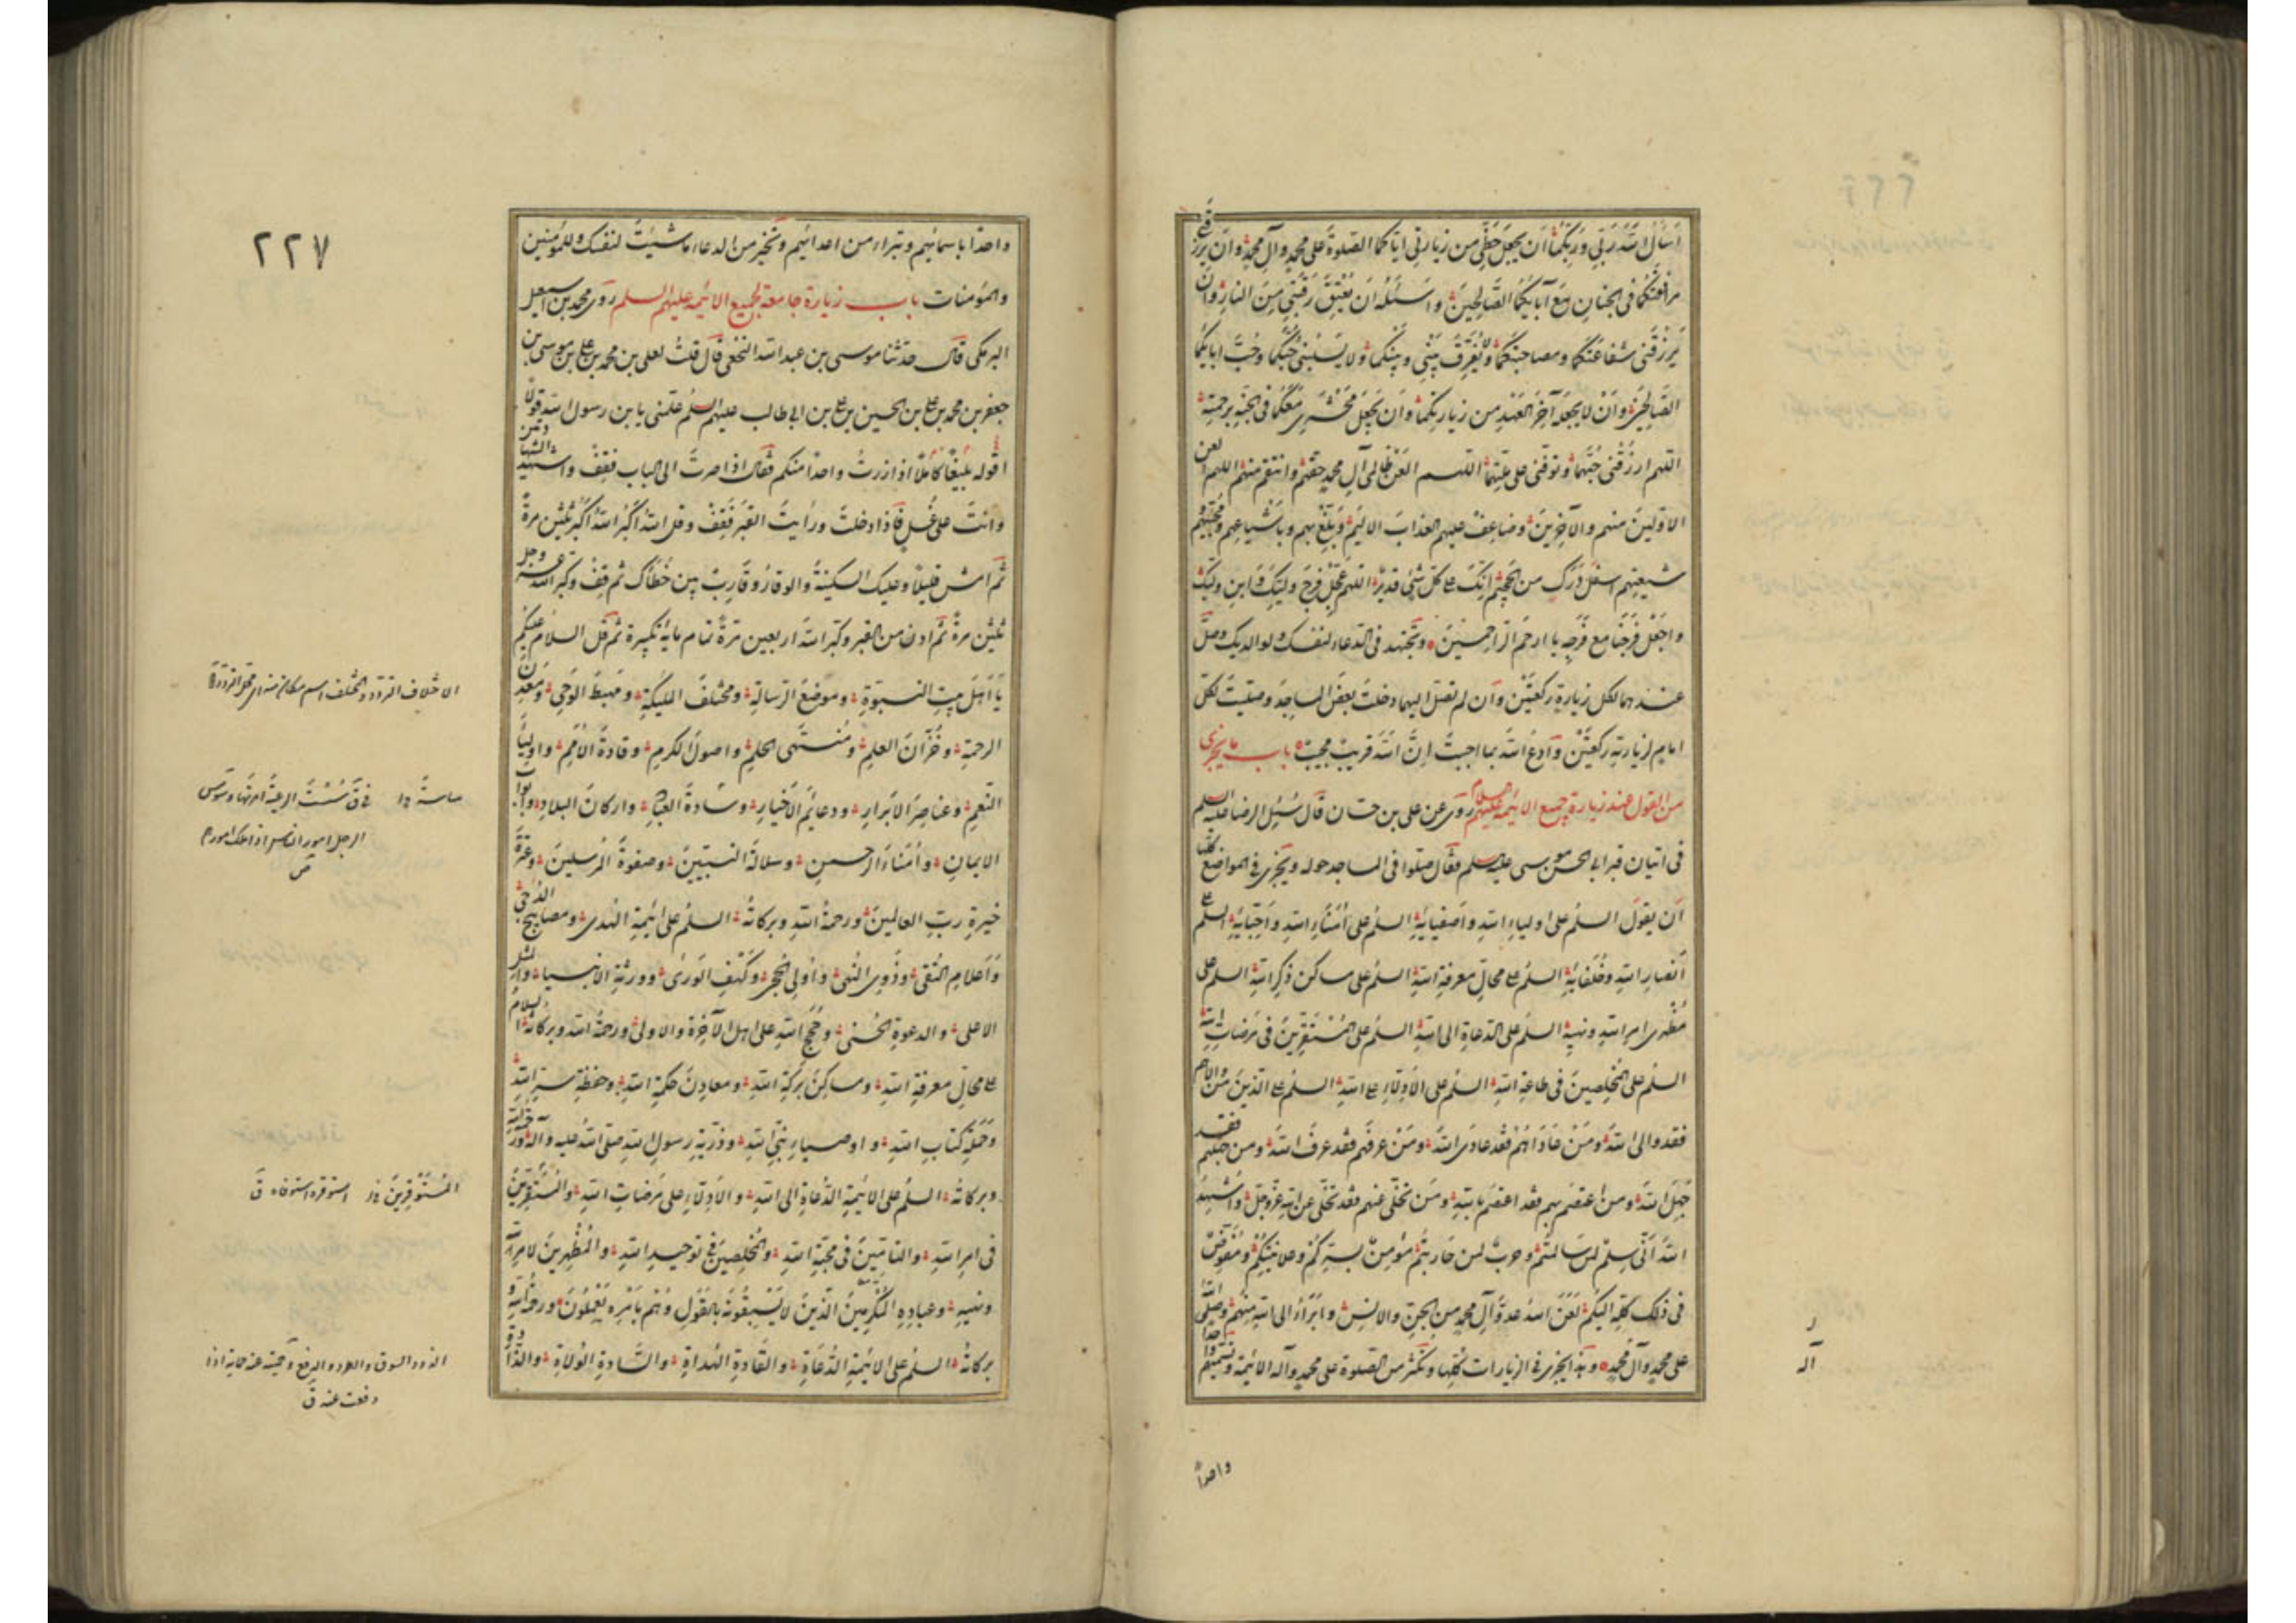 اَسْأَلُ اللّٰهَ رَبّي وَرَبَّكُما اَنْ يَجْعَلَ حَظّي من زيارتي اياكما الصلوةَ على محمدٍ وآلِ محمدٍ وان يرزقني
مرافقتكما في الجنان مع آبائكما الصالحينَ واسئله اَن يُعتِقَ رقبتي مِنَ النارِ وان
يَرزقَني شفاعتكما ومصاحبتكما ولا يُفرّق بيني وبينكما ولا يَسلبني حُبَّكما وحُبَّ ابائكما
الصالحينَ وانْ لا يجعلَه آخرَ العهدِ من زيارتكما وان يجعلَ محشري معكما في الجنةِ برحمته
اللهم ارزقني حُبَّهما وتوفني على ملتهما اللهم العن ظالمي آلِ محمدٍ حقهم وانتقم منهم اللهم العن
الاولينَ منهم والآخرينَ وضاعف عليهم العذابَ الاليم وبلّغ بهم وباشياعهم ومحبيهم و
شيعتهم اسفلَ دَرَكٍ من الجحيم انّكَ على كلّ شيءٍ قديرٌ اللهم عجّل فرجَ وليّكَ وابنِ وليّكَ
واجعَل فرجَنا مع فرجِه يا ارحمَ الراحمينَ وتجتهد في الدعاء لنفسك ولوالديك وصلّ
عندهما لكل زيارةٍ ركعتين وان لم تصل اليهما دخلتَ بعض المساجد وصليتَ لكل
امامٍ لزيارته ركعتين وادعُ اللّٰهَ بما احببتَ انَّ اللّٰهَ قريبٌ مجيبٌ باب ما يجزي
من القول عند زيارة جميع الائمة عليهم السلام روي عن علي بن حسان قال سُئِل الرضا عليه السلم
في اتيان قبر ابي الحسن موسى عليه السلم فقال صلوا في المساجد حوله ويجزي في المواضع كلها
اَن يقولَ السلمُ على اولياءِ اللّٰهِ واَصفيائِه السلمُ على اُمَناءِ اللّٰهِ واَحبّائِه السلم على
اَنصارِ اللّٰهِ وخُلَفائِه السلمُ على محالِّ معرفةِ اللّٰهِ السلمُ على مساكن ذِكرِ اللّٰهِ السلم على
مُظهري امرِ اللّٰهِ ونهيِه السلمُ على الدعاةِ الى اللّٰهِ السلمُ على المستقرّينَ في مَرضاتِ اللّٰه
السلمُ على المخلِصينَ في طاعةِ اللّٰهِ السلمُ على الاَدِلّاءِ على اللّٰهِ السلمُ على الذينَ مَن والاهم
فقد والى اللّٰهَ ومَنْ عاداهُم فقد عادى اللّٰهَ ومَنْ عرفَهم فقد عرفَ اللّٰهَ ومن جهلهم فقد
جَهِلَ اللّٰهَ ومن اعتصمَ بهم فقد اعتصمَ باللّٰهِ ومَن تخلّى عنهم فقد تخلّى عن اللّٰهِ عزّ وجلّ واُشهِدُ
اللّٰهَ اَنّي سِلمٌ لمن سالمتم وحربٌ لمن حاربتُم مؤمنٌ بسرّكم وعلانيتكُم ومُفوّضٌ
في ذلك كلِّه اليكم لَعَنَ اللّٰهُ عدوَّ آلِ محمدٍ من الجنّ والانسِ وابرَأُ الى اللّٰهِ منهم وصلّى اللّٰه
على محمدٍ وآل محمدٍ وهذا يجزي في الزيارات كلِّها وتكثر من الصلوة على محمد وآله الائمة وتسميهم واحدا
ر
آله
واحداً
٢٢٧
واحدًا باسمائهم وتبراء من اعدائهم وتخير من الدعاء ما شئتَ لنفسك وللمؤمنين
والمؤمنات باب زيارة جامعة لجميع الائمة عليهم السلم روى محمد بن اسمعيل
البرمكي قال حدثنا موسى بن عبد اللّٰه النخعي قال قلتُ لعلي بن محمد بن علي بن موسى بن
جعفر بن محمد بن علي بن الحسين بن علي بن ابي طالب عليهم السلم علّمني يا بن رسول اللّٰه قولًا
اقوله بليغًا كاملًا اذا زرتُ واحدًا منكم فقال اذا صرتَ الى الباب فقِفْ واشهد الشهادتين
وانتَ على غُسلٍ فاذا دخلتَ ورأيتَ القبرَ فقِفْ وقل اللّٰهُ اكبرُ اللّٰهُ اكبرُ ثلثين مرةً
ثم امشِ قليلًا وعليك السكينةُ والوقارُ وقارِبْ بين خُطاك ثم قِفْ وكبّر اللّٰه عز وجل
ثلثين مرةً ثم ادن من القبر وكبّر اللّٰهَ اربعين مرّةً تمام مائةِ تكبيرة ثم قل السلام عليكم
يا اهلَ بيتِ النبوّةِ وموضعَ الرسالةِ ومختلفَ الملئكةِ ومهبطَ الوحيِ ومعدنَ
الرحمةِ وخُزّانَ العلمِ ومُنتهى الحلمِ واصولَ الكرمِ وقادةَ الاُمَمِ واولياءَ
النّعمِ وعناصرَ الابرارِ ودعائمَ الاخيارِ وساسةَ العبادِ واركانَ البلادِ وابوابَ
الايمانِ واُمَناءَ الرحمنِ وسلالةَ النبيينَ وصفوةَ المرسلينَ وعترةَ
خيرةِ ربِّ العالمينَ ورحمةُ اللّٰهِ وبركاتُه السلمُ على ائمةِ الهُدى ومصابيحِ الدُجى
واَعلامِ التُقى وذوي النُهى واُولي الحِجى وكَهفِ الورى وورثةِ الانبياءِ والمثل
الاعلى والدعوةِ الحُسنى وحُججِ اللّٰهِ على اهلِ الآخرةِ والاولى ورحمةُ اللّٰه وبركاتُه السلامُ
على محالِّ معرفةِ اللّٰهِ ومساكنِ بركةِ اللّٰهِ ومعادنِ حكمةِ اللّٰهِ وحفظةِ سرّ اللّٰهِ
وحَمَلةِ كتابِ اللّٰهِ واوصياءِ نبيِّ اللّٰهِ وذرّيةِ رسولِ اللّٰهِ صلى اللّٰهُ عليه وآله ورحمةُ اللّٰهِ
وبركاتُه السلمُ على الائمةِ الدُعاةِ الى اللّٰهِ والاَدِلّاءِ على مَرضاتِ اللّٰهِ والمستقرّينَ
في امرِ اللّٰهِ والتامّينَ في محبّةِ اللّٰهِ والمخلصينَ في توحيدِ اللّٰهِ والمُظهِرينَ لامرِ اللّٰه
ونهيِه وعبادِهِ المُكرَمينَ الّذينَ لا يَسبِقونَهُ بالقولِ وهُم بامرِه يَعمَلونَ ورحمةُ اللّٰه و
بركاتُه السلمُ على الائمةِ الدُعاةِ والقادةِ الهُداةِ والسّادةِ الوُلاةِ والذّادةِ
الاختلاف التردد والمختلف اسم مكان منه اي محل التردد
ق سُسْتُ الرعية امرتها ونهيتها وسوس
الرجل امور الناس اذا ملك امورهم
ص
المُستَوفِرينَ استوفره استوفاه ق
الذود السوق والطرد والدفع وحميته حماية اذا
دفعت عنه ق